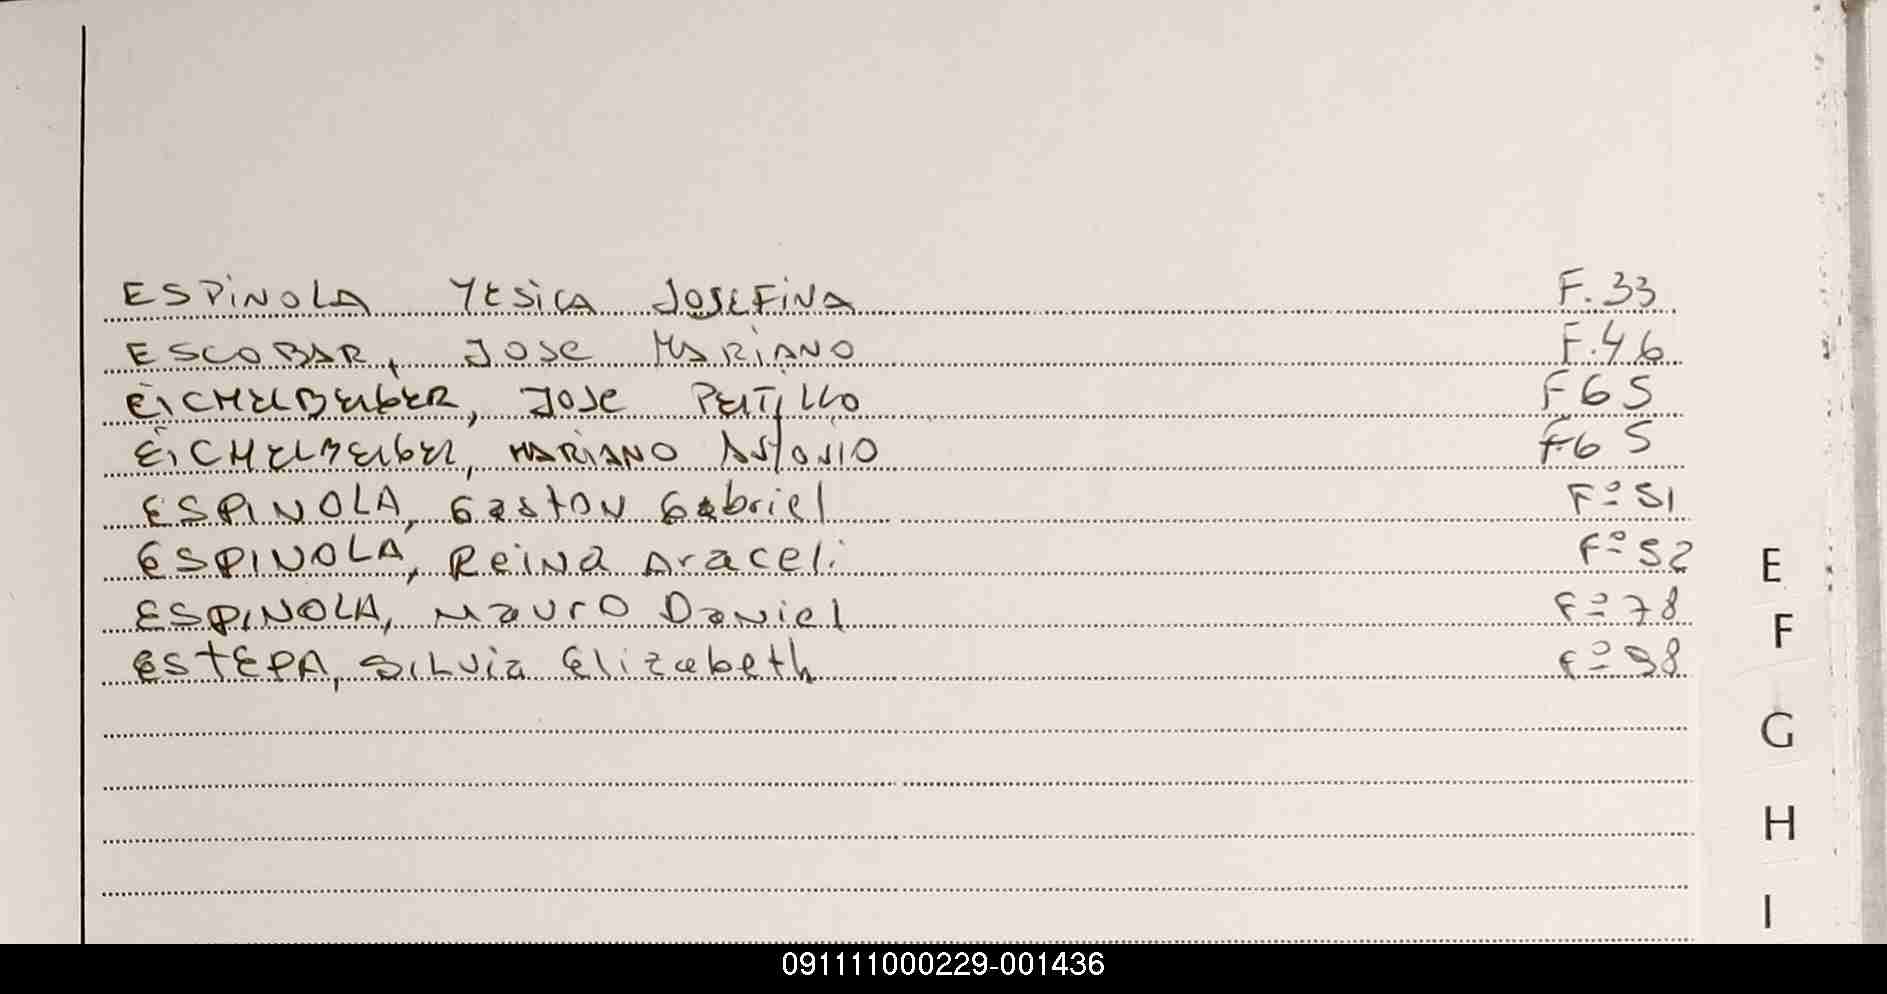 ESPINOLA YESICA JOSEFINA F.33
ESCOBAR, JOSE MARIANO F.46
EICHELBERGER, JOSE F65
EICHELBERGER, MARIANO ANTONIO F65
ESPINOLA, Gaston Gabriel Fº51
ESPINOLA, Reina Araceli Fº52
ESPINOLA, Mauro Daniel Fº78
ESTEPA, SILVia Elizabeth Fº98
E
F
G
H
I
091111000229-001436